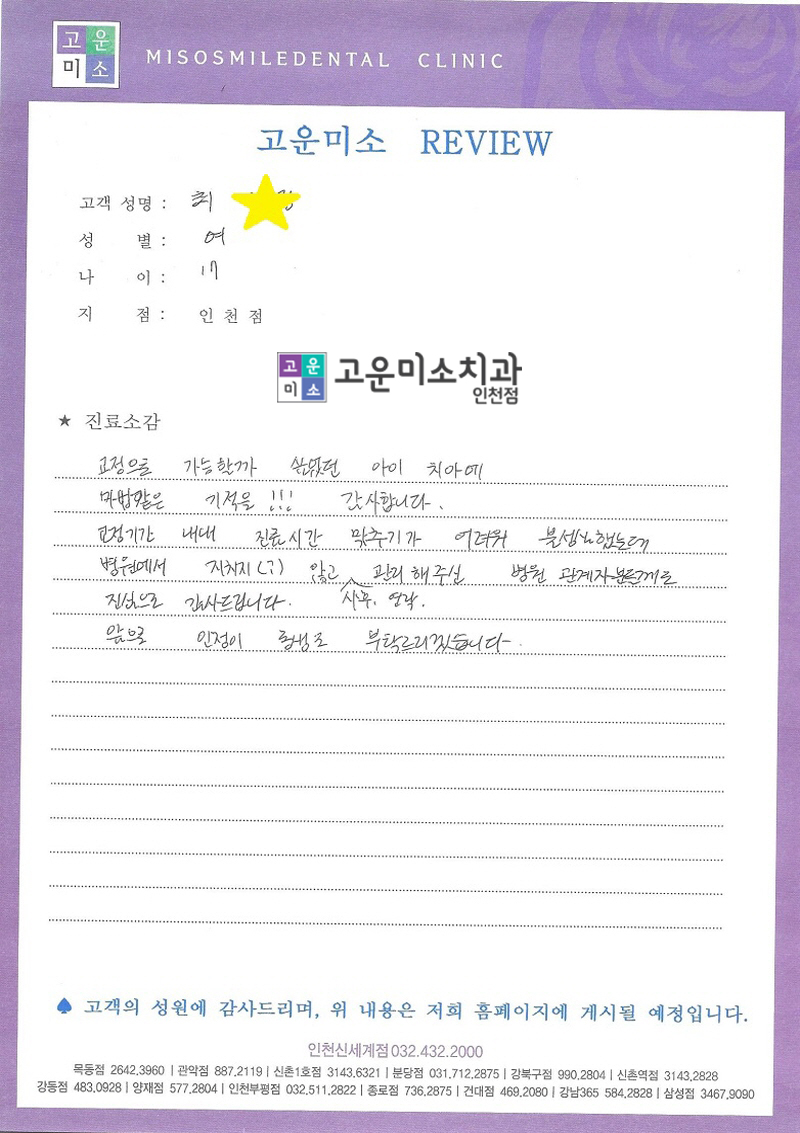 고운
미소
MISOSMILEDENTAL CLINIC
고운미소 REVIEW
고객 성명 : 최
성 별 : 여
나 이 : 17
지 점 : 인 천 점
고운
미소
고운미소치과
인천점
★ 진료소감
교정으로 가능할까 싶었던 아이 치아에
마법같은 기적을 !!! 감사합니다.
교정기간 내내 진료시간 맞추기가 어려워 불성실했는데
병원에서 지치지(?) 않고 관리 해 주신 병원 관계자분들께도
사후, 연락.
진심으로 감사드립니다.
앞으로 인정이 부탁드리겠습니다.
♠ 고객의 성원에 감사드리며, 위 내용은 저희 홈페이지에 게시될 예정입니다.
인천신세계점 032.432.2000
목동점 2642,3960 | 관악점 887,2119 | 신촌1호점 3143,6321 | 분당점 031,712,2875 | 강북구점 990,2804 | 신촌역점 3143,2828
강동점 483,0928 | 양재점 577,2804 | 인천부평점 032,511,2822 | 종로점 736,2875 | 건대점 469,2080 | 강남365 584,2828 | 삼성점 3467,9090